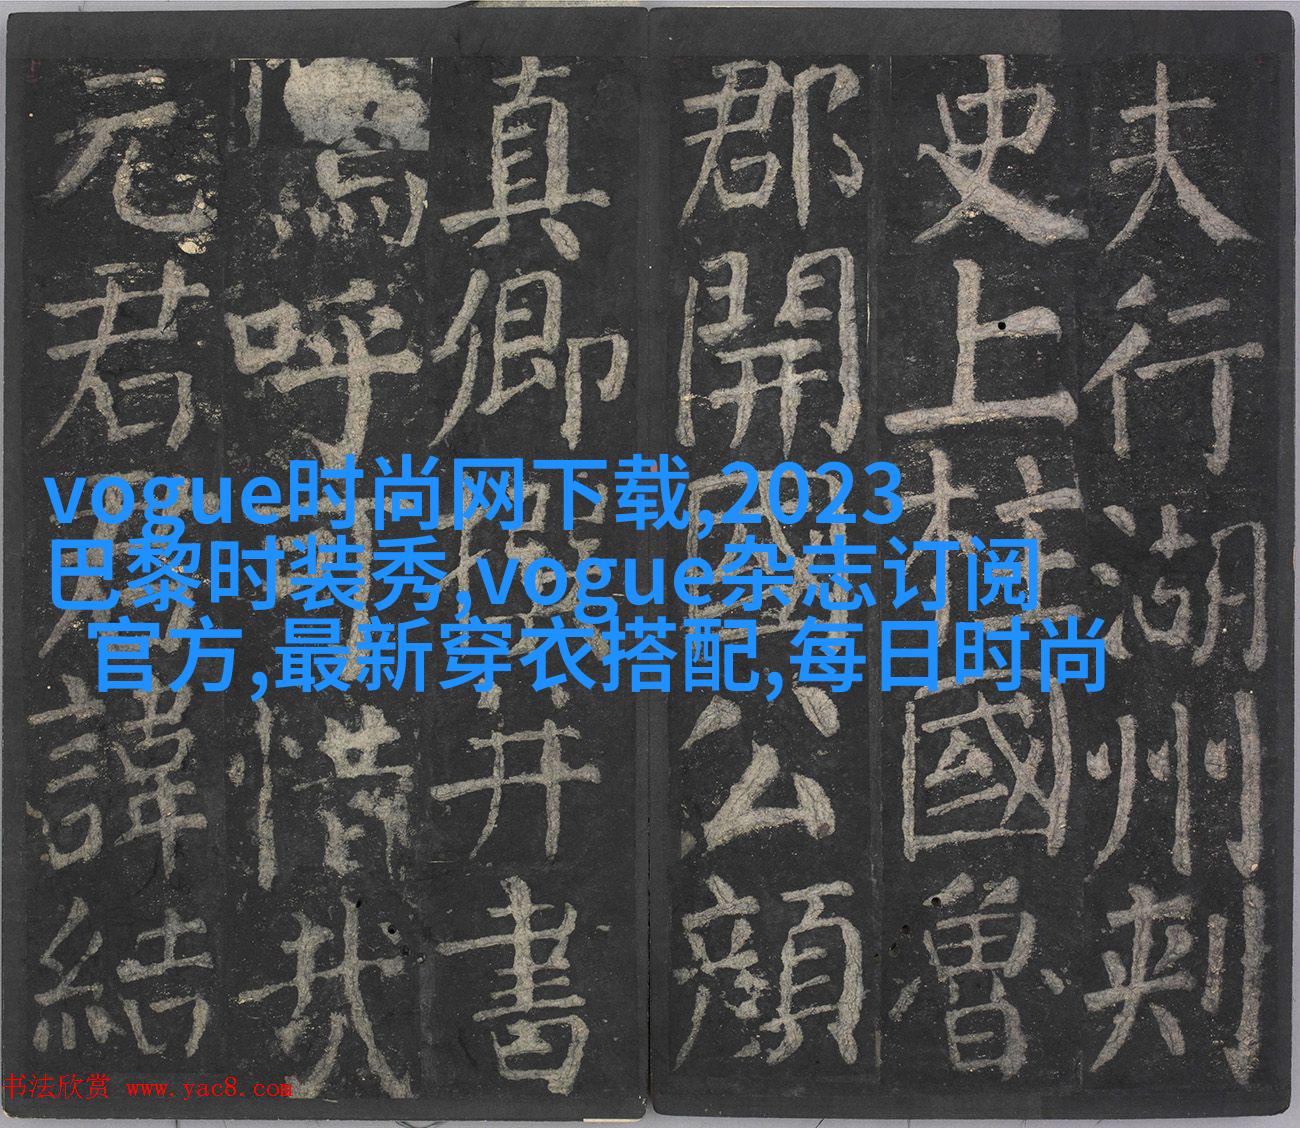 夫行湖州刺
史上柱國魯
郡開國公顏
真卿撰并書
嗚呼可惜哉
元君君諱結
vogue时尚网下载,2023
巴黎时装秀,vogue杂志订阅
官方,最新穿衣搭配,每日时尚
书法欣赏 www.yac8.com